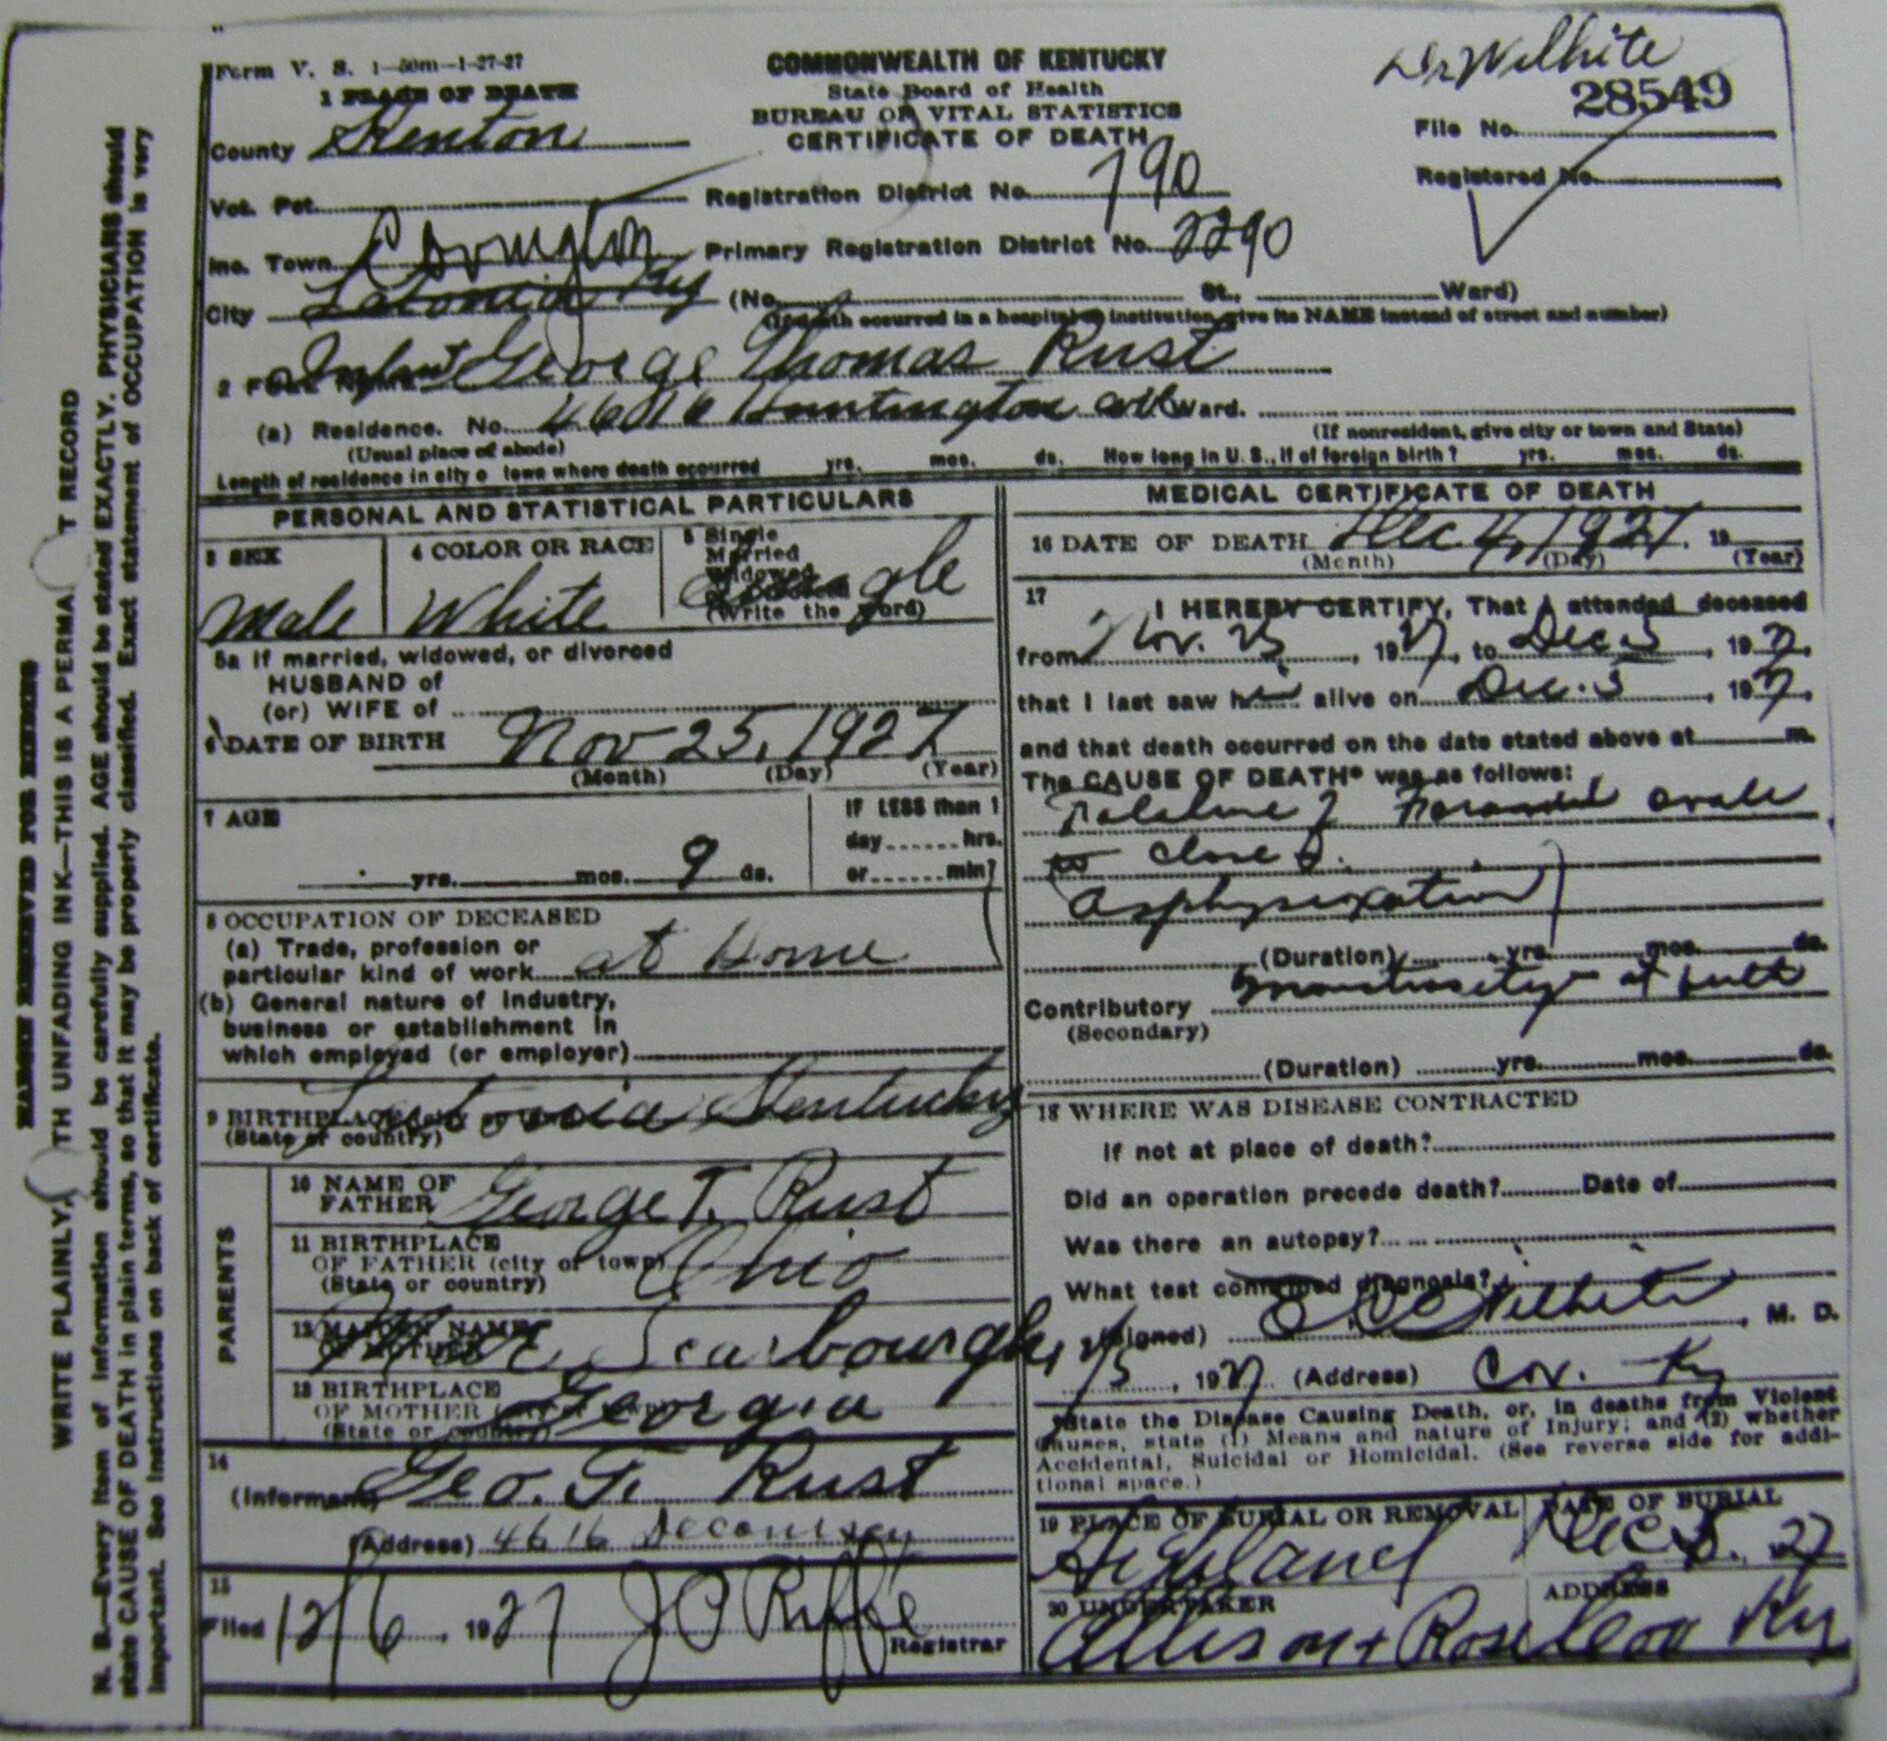 Form V. S. 1-50m-1-27-27
COMMONWEALTH OF KENTUCKY
State Board of Health
BUREAU OF VITAL STATISTICS
CERTIFICATE OF DEATH
Dr Wilhite
28549
File No.
Registered No.
1 PLACE OF DEATH
County Kenton
Vot. Pct.
Registration District No. 790
Inc. Town Covington
Primary Registration District No. 2290
City Latonia Ky (No. St., Ward)
(If death occurred in a hospital or institution, give its NAME instead of street and number)
2 FULL NAME Infant George Thomas Rust
(a) Residence. No. Huntington Ward.
(Usual place of abode)
(If nonresident, give city or town and State)
Length of residence in city o town where death occurred yrs. mos. ds. How long in U. S., if of foreign birth? yrs. mos. ds.
PERSONAL AND STATISTICAL PARTICULARS
3 SEX
Male
4 COLOR OR RACE
White
5 Single
Married
Widowed
(Write the word)
Single
5a If married, widowed, or divorced
HUSBAND of
(or) WIFE of
6 DATE OF BIRTH Nov 25, 1927
(Month) (Day) (Year)
7 AGE
yrs. mos. 9 ds.
IF LESS than 1
day hrs.
or min?
8 OCCUPATION OF DECEASED
(a) Trade, profession or
particular kind of work at Home
(b) General nature of industry,
business or establishment in
which employed (or employer)
9 BIRTHPLACE Latonia Kentucky
(State or country)
PARENTS
10 NAME OF
FATHER George T. Rust
11 BIRTHPLACE
OF FATHER (city or town) Ohio
(State or country)
12 MAIDEN NAME
OF MOTHER Scarbourgh
13 BIRTHPLACE
OF MOTHER Georgia
(State or country)
14
(Informant) Geo. T. Rust
(Address) 4616 Decoursey
15
Filed 12/6, 1927 J P Riffe
Registrar
MEDICAL CERTIFICATE OF DEATH
16 DATE OF DEATH Dec 4, 1927. 19
(Month) (Day) (Year)
17
I HEREBY CERTIFY, That I attended deceased
from Nov. 25, 1927, to Dec 5, 1927,
that I last saw him alive on Dec. 5, 1927,
and that death occurred on the date stated above at m.
The CAUSE OF DEATH* was as follows:
Failure of Foramen ovale
to close
Asphyxixation)
(Duration) yrs. mos. ds.
Contributory at birth
(Secondary)
(Duration) yrs. mos. ds.
18 WHERE WAS DISEASE CONTRACTED
if not at place of death?
Did an operation precede death? Date of
Was there an autopsy?
What test confirmed diagnosis?
(Signed) Wilhite, M. D.
12/5, 1927 (Address) Cov. Ky
*State the Disease Causing Death, or, in deaths from Violent
Causes, state (1) Means and nature of Injury; and (2) whether
Accidental, Suicidal or Homicidal. (See reverse side for addi-
tional space.)
19 PLACE OF BURIAL OR REMOVAL
Highland
DATE OF BURIAL
Dec 27
20 UNDERTAKER
Allison + Rose
ADDRESS
Cov Ky
MARGIN RESERVED FOR BINDING
WRITE PLAINLY, TH UNFADING INK—THIS IS A PERMA T RECORD
N. B.—Every item of information should be carefully supplied. AGE should be stated EXACTLY. PHYSICIANS should
state CAUSE OF DEATH in plain terms, so that it may be properly classified. Exact statement of OCCUPATION is very
important. See instructions on back of certificate.